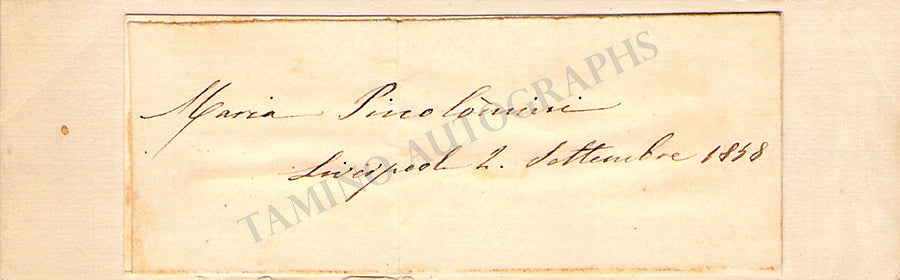 Maria Piccolòmini
Liverpool 2. Settembre 1858
TAMINO AUTOGRAPHS